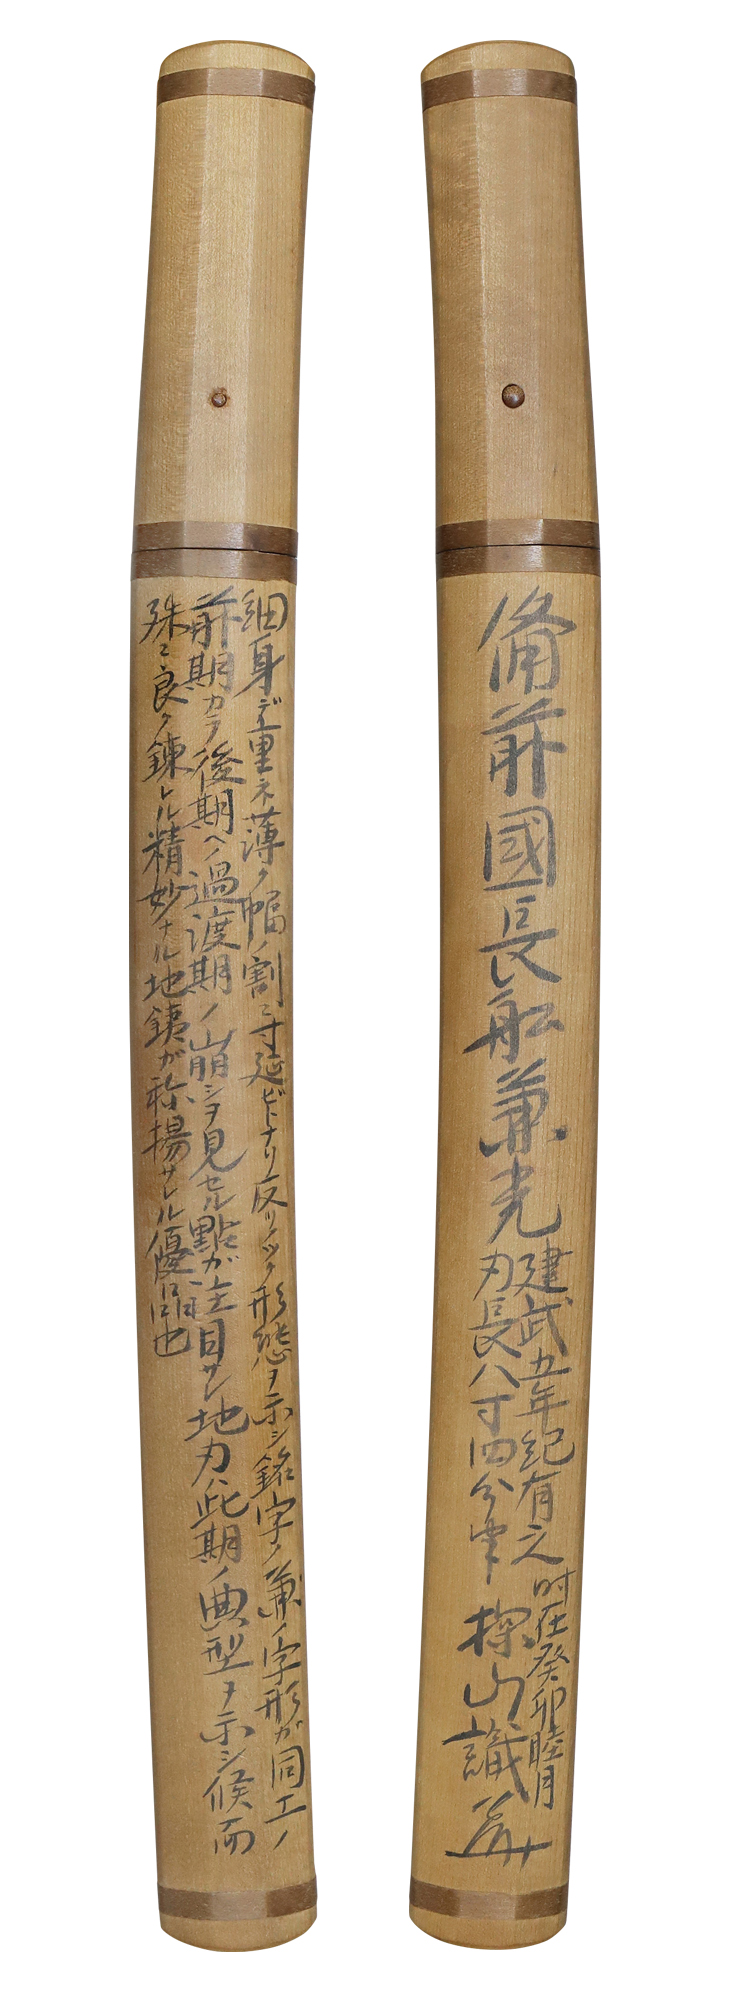 備前國長船兼光
建武五年紀有之
刃長八寸四分半
時在癸卯睦月
探山識
細身デ重ネ薄ク幅ノ割ニ寸延ビトナリ反リツク形態ヲ示シ銘字ノ兼ノ字形ガ同工ノ
前期カラ後期ヘノ過渡期ノ崩シヲ見セル點ガ注目サレ地刃ハ此期ノ典型ヲ示シ候而
殊ニ良ク錬レル精妙ナル地鉄ガ称揚サレル優品也